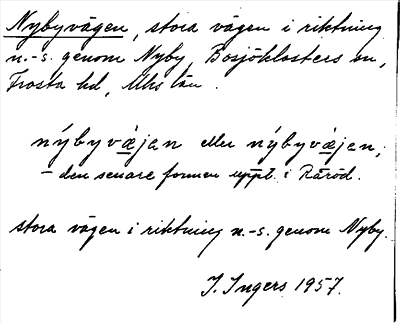 Nybyvägen, stora vägen i riktning
n.-s. genom Nyby, Bosjöklosters sn,
Frosta hd, Mhs län.
nýbyvæ̀jan eller nýbyvæjan,
– den senare formen uppt. i Råröd.
stora vägen i riktning n.-s. genom Nyby.
I. Ingers 1957.